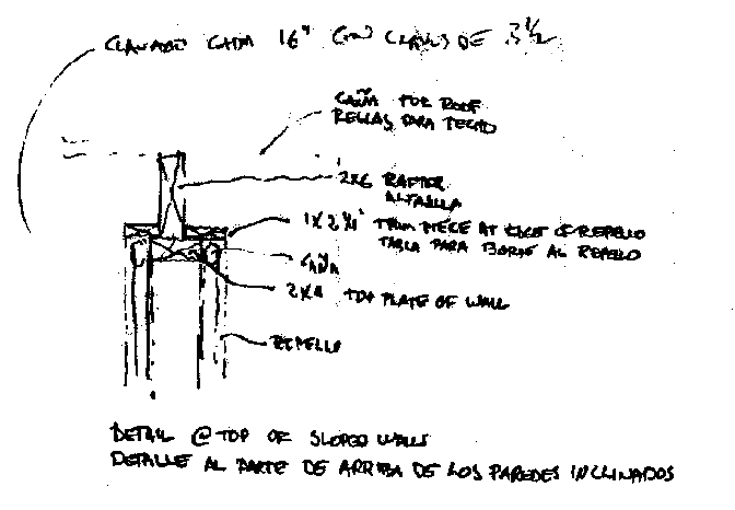 CLAVADO CADA 16" CON CLAVOS DE 3½
CAÑA FOR ROOF
REGLAS PARA TECHO
2X6 RAFTER
ALFAJILLA
1X2¼" TRIM PIECE AT EDGE OF REPELLO
TABLA PARA BORDE AL REPELLO
CAÑA
2X4 TOP PLATE OF WALL
REPELLO
DETAIL @ TOP OF SLOPED WALLS
DETALLE AL PARTE DE ARRIBA DE LOS PAREDES INCLINADOS